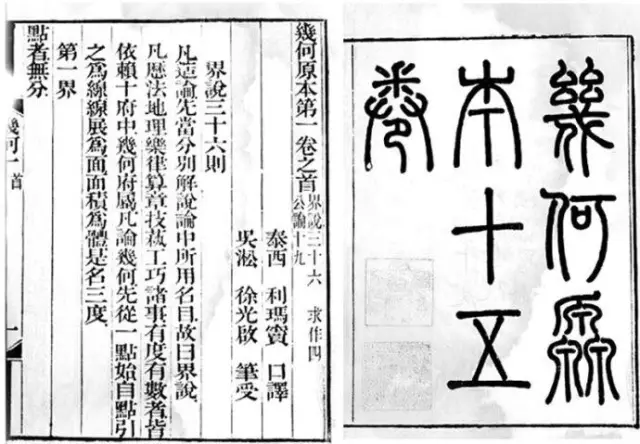 幾何原
本十五
卷
幾何原本第一卷之首
界說三十六 求作四
公論十九
泰西 利瑪竇 口譯
吳淞 徐光啟 筆受
界說三十六則
凡造論先當分別解說論中所用名目故曰界說
凡歷法地理樂律算章技藝工巧諸事有度有數者皆
依賴十府中幾何府屬凡論幾何先從一點始自點引
之爲線線展爲面面積爲體是名三度
第一界
點者無分
幾何一 首